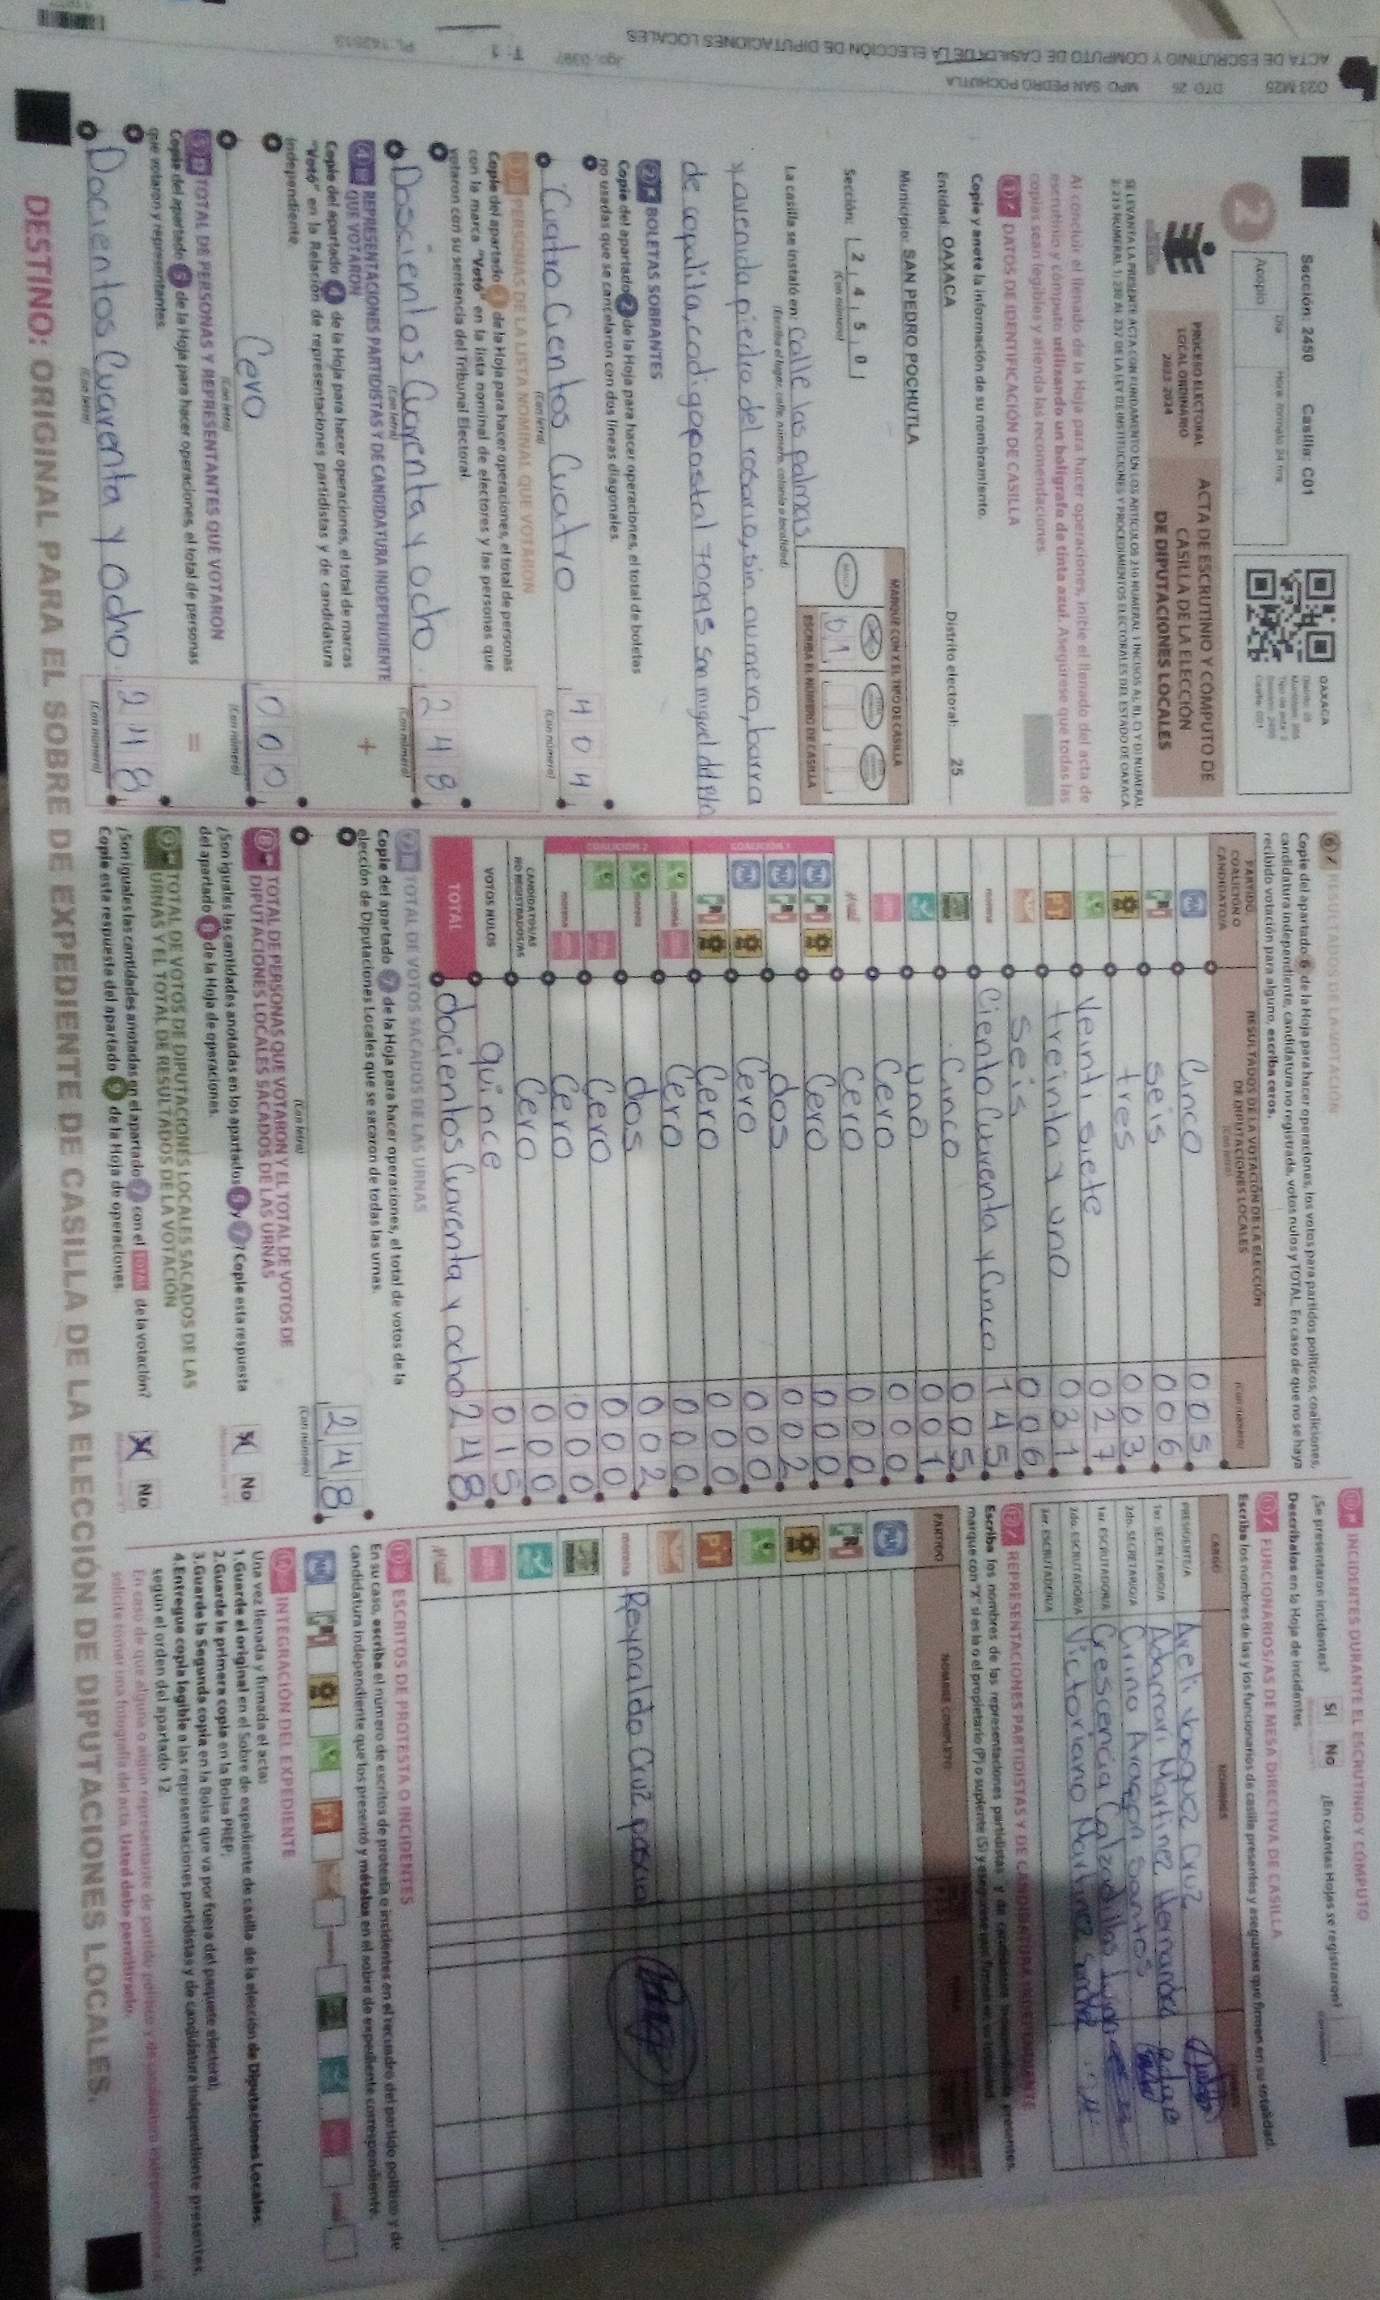 Sección: 2450 Casilla: C01
OAXACA
2
Acopio
Día
Hora: formato 24 hrs.
PROCESO ELECTORAL
LOCAL ORDINARIO
2023-2024
ACTA DE ESCRUTINIO Y CÓMPUTO DE
CASILLA DE LA ELECCIÓN
DE DIPUTACIONES LOCALES
Al concluir el llenado de la Hoja para hacer operaciones, inicie el llenado del acta de
escrutinio y cómputo utilizando un bolígrafo de tinta azul. Asegúrese que todas las
copias sean legibles y atienda las recomendaciones.
1 DATOS DE IDENTIFICACIÓN DE CASILLA
Copie y anote la información de su nombramiento.
Entidad: OAXACA Distrito electoral: 25
Municipio: SAN PEDRO POCHUTLA
Sección: 2 4 5 0
(Con número)
MARQUE CON X EL TIPO DE CASILLA
ESCRIBA EL NÚMERO DE CASILLA
0 1
La casilla se instaló en: Calle las palmas
(Escriba el lugar, calle, número, colonia o localidad)
y avenida piedra del rosario, sin numero, barra
de copalita, codigo postal 70985 San miguel del pto
2 BOLETAS SOBRANTES
Copie del apartado 2 de la Hoja para hacer operaciones, el total de boletas
no usadas que se cancelaron con dos líneas diagonales.
Cuatro Cientos Cuatro 4 0 4
(Con letra) (Con número)
3 PERSONAS DE LA LISTA NOMINAL QUE VOTARON
Copie del apartado 3 de la Hoja para hacer operaciones, el total de personas
con la marca "Votó" en la lista nominal de electores y las personas que
votaron con su sentencia del Tribunal Electoral.
Doscientos Cuarenta y ocho 2 4 8
(Con letra) (Con número)
4 REPRESENTACIONES PARTIDISTAS Y DE CANDIDATURA INDEPENDIENTE
QUE VOTARON
Copie del apartado 4 de la Hoja para hacer operaciones, el total de marcas
"Votó" en la Relación de representaciones partidistas y de candidatura
independiente.
+
Cero 0 0 0
(Con letra) (Con número)
5 TOTAL DE PERSONAS Y REPRESENTANTES QUE VOTARON
Copie del apartado 5 de la Hoja para hacer operaciones, el total de personas
que votaron y representantes.
=
Docientos Cuarenta y Ocho 2 4 8
(Con letra) (Con número)
6 RESULTADOS DE LA VOTACIÓN
Copie del apartado 6 de la Hoja para hacer operaciones, los votos para partidos políticos, coaliciones,
candidatura independiente, candidatura no registrada, votos nulos y TOTAL. En caso de que no se haya
recibido votación para alguno, escriba ceros.
PARTIDO, COALICIÓN O CANDIDATO/A
RESULTADOS DE LA VOTACIÓN DE LA ELECCIÓN
DE DIPUTACIONES LOCALES
(Con letra) (Con número)
PAN Cinco 0 0 5
PRI seis 0 0 6
tres 0 0 3
Veinti siete 0 2 7
PT treinta y uno 0 3 1
seis 0 0 6
morena Ciento Cuarenta y Cinco 1 4 5
Cinco 0 0 5
uno 0 0 1
Cero 0 0 0
cero 0 0 0
COALICIÓN 1
Cero 0 0 0
dos 0 0 2
Cero 0 0 0
Cero 0 0 0
COALICIÓN 2
Cero 0 0 0
dos 0 0 2
Cero 0 0 0
Cero 0 0 0
CANDIDATOS/AS
NO REGISTRADOS/AS Cero 0 0 0
VOTOS NULOS quince 0 1 5
TOTAL docientos Cuarenta y ocho 2 4 8
7 TOTAL DE VOTOS SACADOS DE LAS URNAS
Copie del apartado 7 de la Hoja para hacer operaciones, el total de votos de la
elección de Diputaciones Locales que se sacaron de todas las urnas.
2 4 8
(Con letra) (Con número)
8 TOTAL DE PERSONAS QUE VOTARON Y EL TOTAL DE VOTOS DE
DIPUTACIONES LOCALES SACADOS DE LAS URNAS
¿Son iguales las cantidades anotadas en los apartados 5 y 7? Copie esta respuesta
del apartado 8 de la Hoja de operaciones.
No
9 TOTAL DE VOTOS DE DIPUTACIONES LOCALES SACADOS DE LAS
URNAS Y EL TOTAL DE RESULTADOS DE LA VOTACIÓN
¿Son iguales las cantidades anotadas en el apartado 7 con el TOTAL de la votación?
Copie esta respuesta del apartado 9 de la Hoja de operaciones.
No
10 INCIDENTES DURANTE EL ESCRUTINIO Y CÓMPUTO
¿Se presentaron incidentes? Sí No ¿En cuántas Hojas se registraron?
Descríbalos en la Hoja de incidentes.
11 FUNCIONARIOS/AS DE MESA DIRECTIVA DE CASILLA
Escriba los nombres de las y los funcionarios de casilla presentes y asegúrese que firmen en su totalidad.
CARGO NOMBRES
PRESIDENTE/A Areli Vasquez Cruz
1er. SECRETARIO/A Adamari Martinez Hernandez
2do. SECRETARIO/A Cirino Aragon Santos
1er. ESCRUTADOR/A Crescencia Calzadillas
2do. ESCRUTADOR/A Victoriano Martinez
3er. ESCRUTADOR/A
12 REPRESENTACIONES PARTIDISTAS Y DE CANDIDATURA INDEPENDIENTE
Escriba los nombres de las representaciones partidistas y de candidatura independiente presentes,
marque con "X" si es la o el propietario (P) o suplente (S) y asegúrese que firmen en su totalidad.
PARTIDO NOMBRE COMPLETO
PAN
PRI
PT
morena Reynaldo Cruz
13 ESCRITOS DE PROTESTA O INCIDENTES
En su caso, escriba el número de escritos de protesta o incidentes en el recuadro del partido político y de
candidatura independiente que los presentó y métalos en el sobre de expediente correspondiente.
14 INTEGRACIÓN DEL EXPEDIENTE
Una vez llenada y firmada el acta:
1.Guarde el original en el Sobre de expediente de casilla de la elección de Diputaciones Locales;
2.Guarde la primera copia en la Bolsa PREP;
3.Guarde la Segunda copia en la Bolsa que va por fuera del paquete electoral;
4.Entregue copia legible a las representaciones partidistas y de candidatura independiente presentes,
según el orden del apartado 12.
DESTINO: ORIGINAL PARA EL SOBRE DE EXPEDIENTE DE CASILLA DE LA ELECCIÓN DE DIPUTACIONES LOCALES.
023 M25 DTO 25 MPO SAN PEDRO POCHUTLA
ACTA DE ESCRUTINIO Y COMPUTO DE CASILLA DE LA ELECCIÓN DE DIPUTACIONES LOCALES